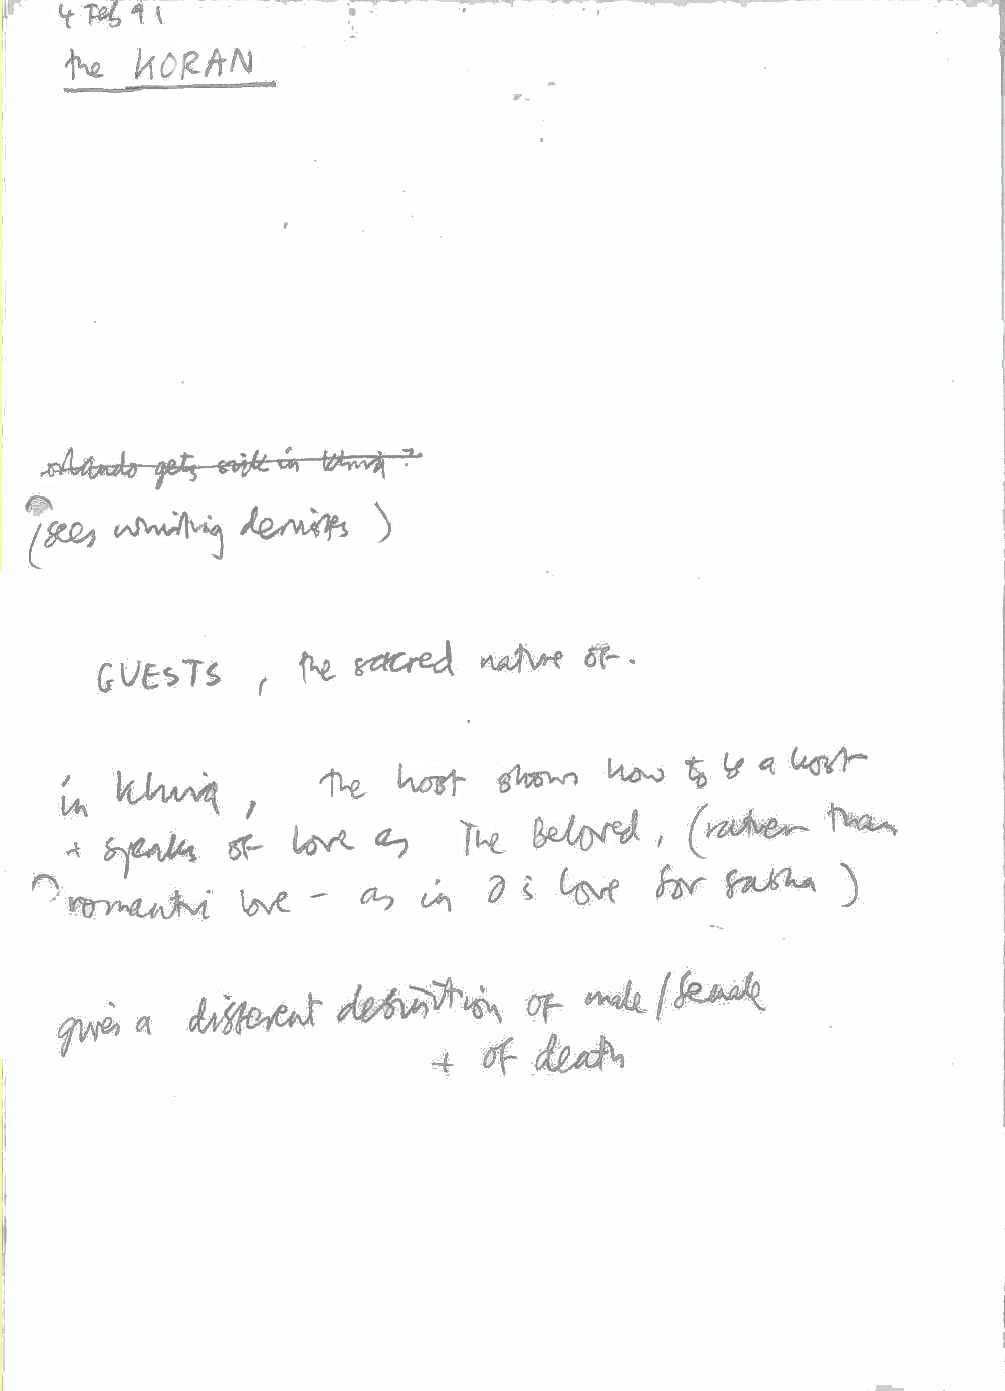 4 Feb 91
the KORAN
orlando gets sick in Khiva?
(sees whirling dervishes)
GUESTS, the sacred nature of.
in Khiva, the host shows how to be a host
+ speaks of love as The Beloved, (rather than
romantic love - as in O's love for Sasha)
gives a different definition of male/female
+ of death